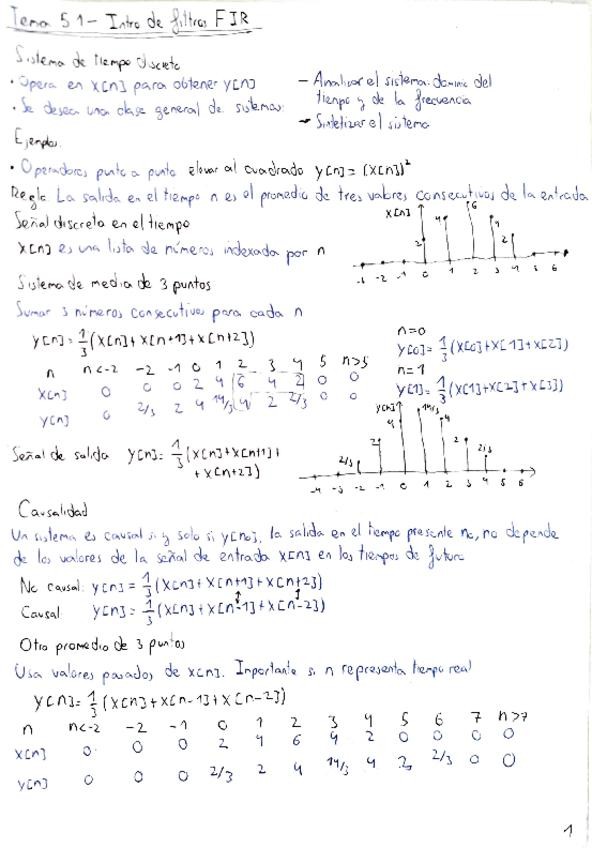 Tema 5.1 - Intro de filtros FIR
Sistema de tiempo discreto
• Opera en x[n] para obtener y[n]
• Se desea una clase general de sistemas:
- Analizar el sistema: dominio del
tiempo y de la frecuencia
- Sintetizar el sistema
Ejemplos
• Operadores punto a punto elevar al cuadrado y[n] = (x[n])²
Regla La salida en el tiempo n es el promedio de tres valores consecutivos de la entrada
Señal discreta en el tiempo
x[n] es una lista de números indexada por n
x[n] 2 4 6 4 2
-2 -1 0 1 2 3 4 5 6
Sistema de media de 3 puntos
Sumar 3 números consecutivos para cada n
y[n] = 1/3 (x[n] + x[n+1] + x[n+2])
n=0
y[0] = 1/3 (x[0] + x[1] + x[2])
n=1
y[1] = 1/3 (x[1] + x[2] + x[3])
n n<-2 -2 -1 0 1 2 3 4 5 n>5
x[n] 0 0 0 2 4 6 4 2 0 0
y[n] 0 2/3 2 4 14/3 4 2 2/3 0 0
Señal de salida y[n] = 1/3 (x[n] + x[n+1] +
+ x[n+2])
y[n] 2/3 2 4 14/3 4 2 2/3
-4 -3 -2 -1 0 1 2 3 4 5 6
Causalidad
Un sistema es causal si y solo si y[n0], la salida en el tiempo presente n0, no depende
de los valores de la señal de entrada x[n] en los tiempos de futuro
No causal: y[n] = 1/3 (x[n] + x[n+1] + x[n+2])
Causal: y[n] = 1/3 (x[n] + x[n-1] + x[n-2])
Otro promedio de 3 puntos
Usa valores pasados de x[n]. Importante si n representa tiempo real
y[n] = 1/3 (x[n] + x[n-1] + x[n-2])
n n<-2 -2 -1 0 1 2 3 4 5 6 7 n>7
x[n] 0 0 0 2 4 6 4 2 0 0 0 0
y[n] 0 0 0 2/3 2 4 14/3 4 2 2/3 0 0
1